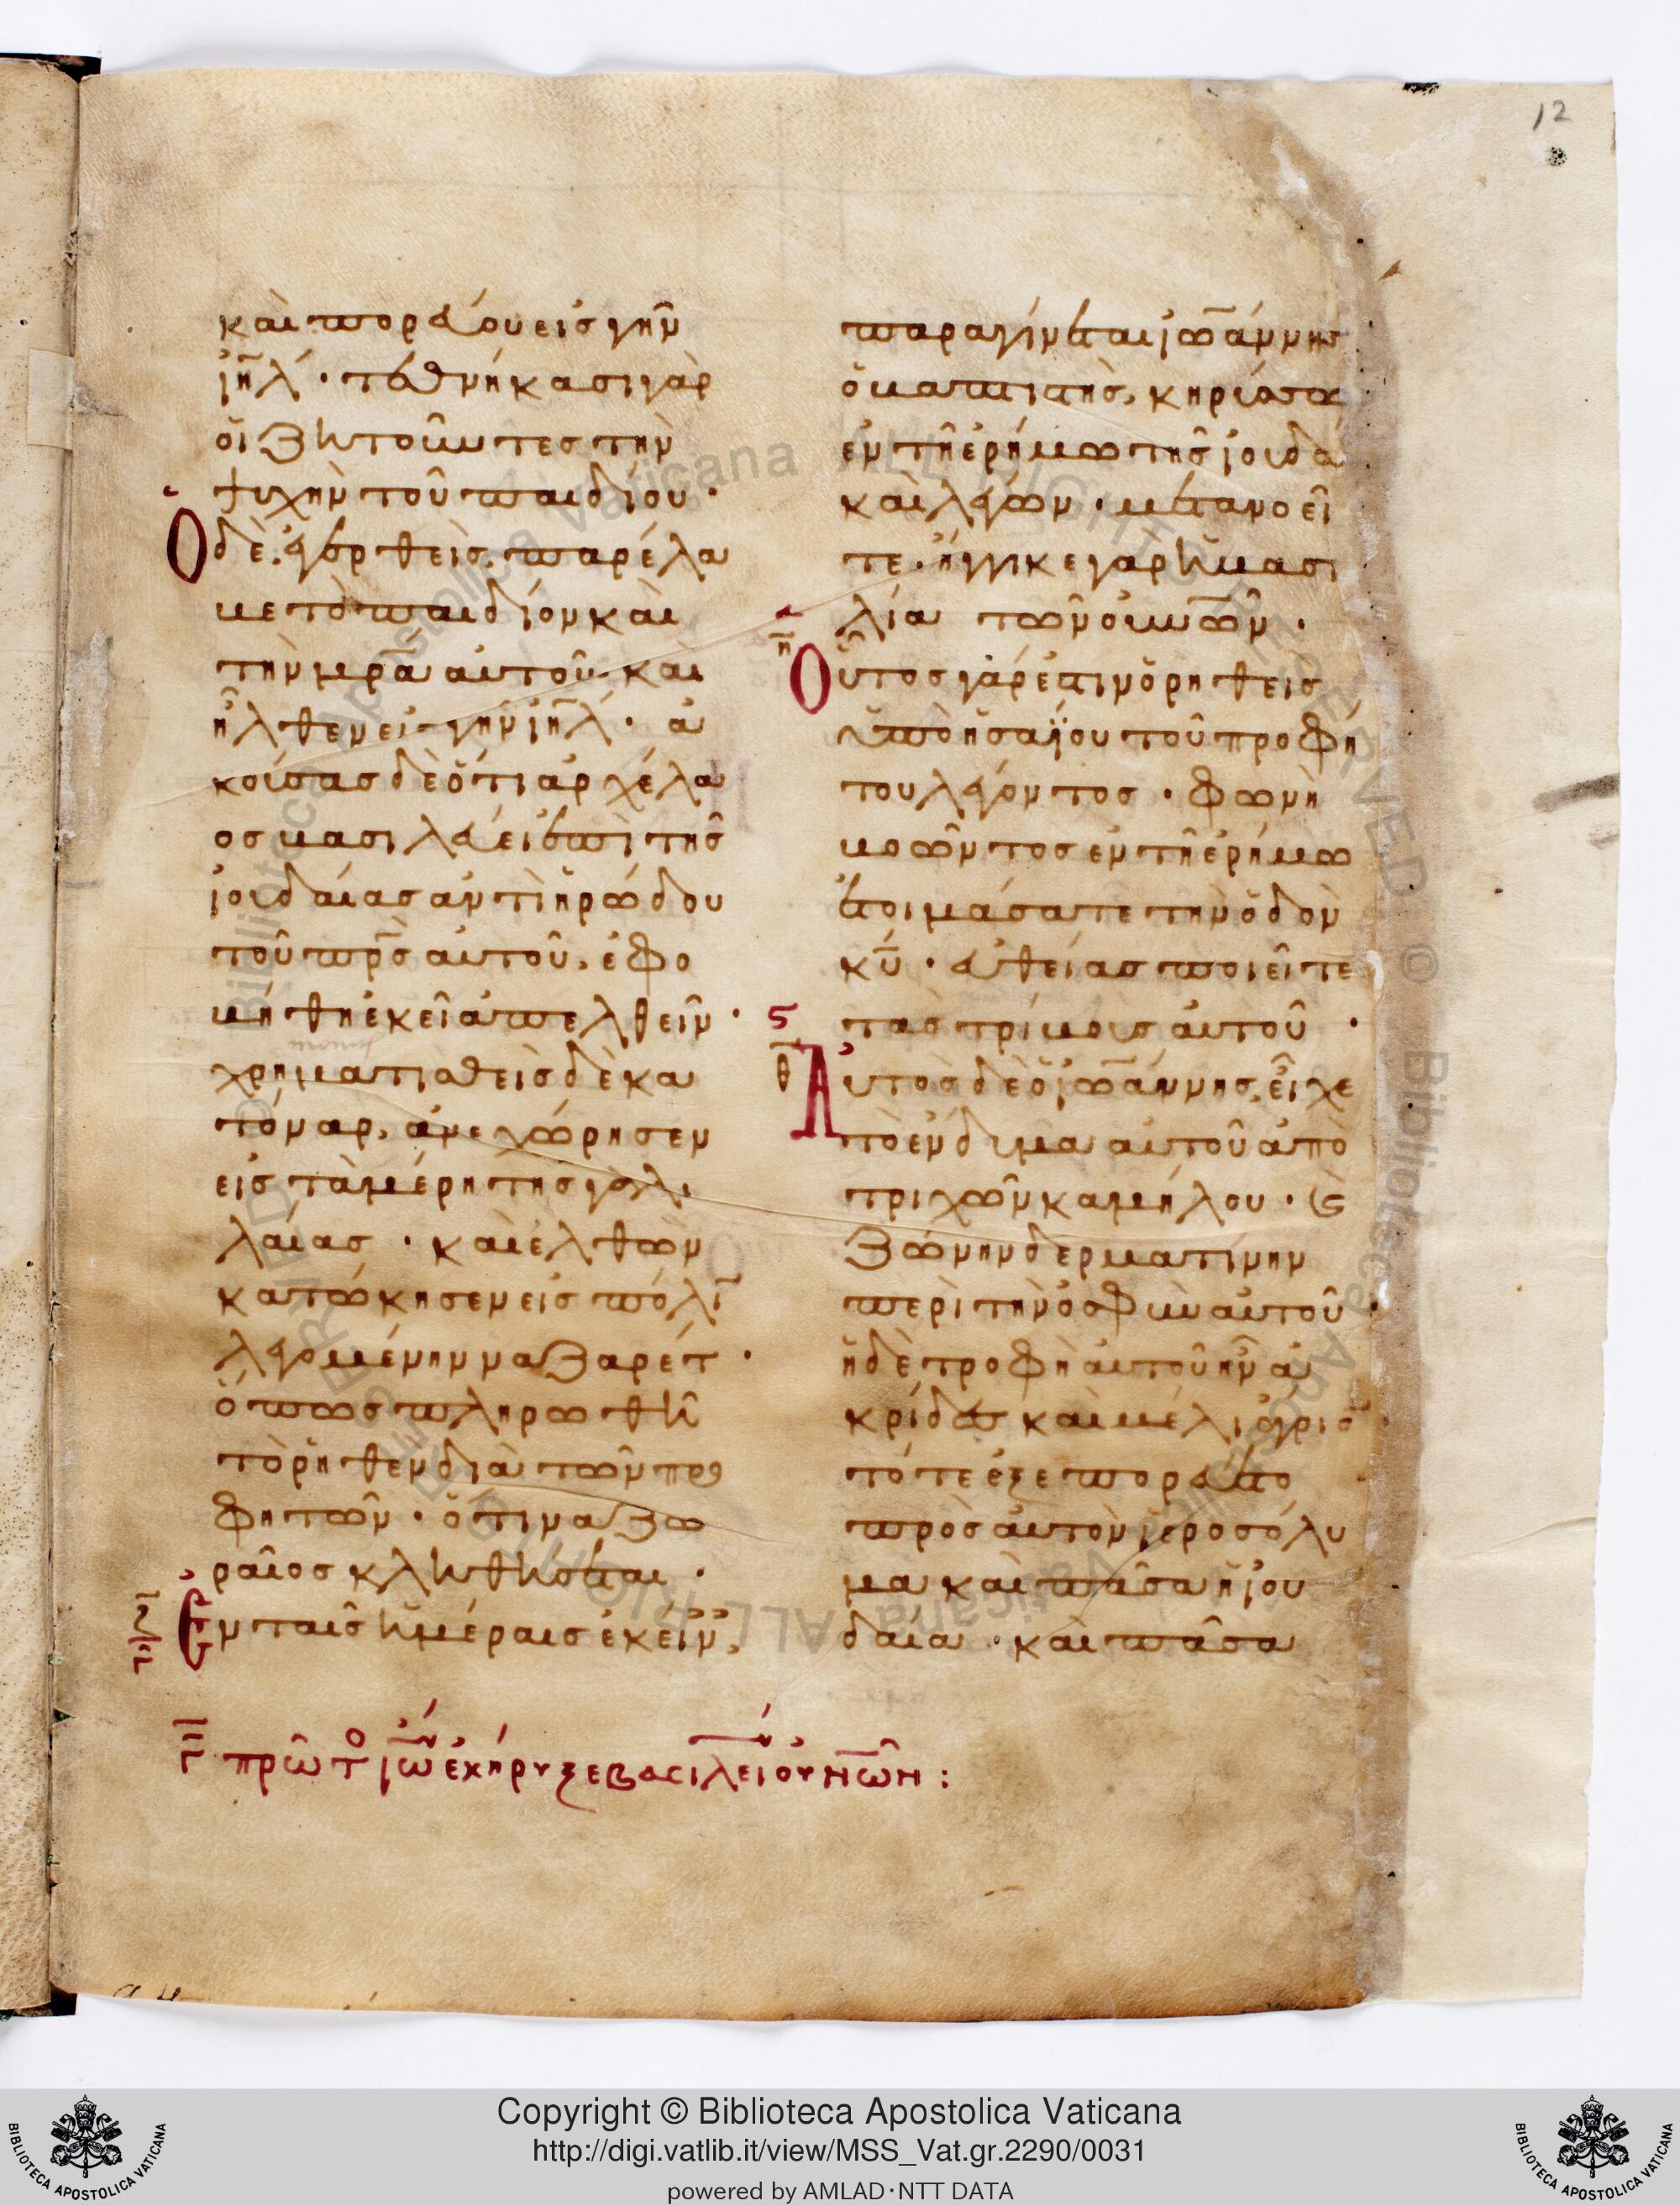 12
καὶ πορεύου εἰς γῆν
ἰη̅λ · τεθνήκασι γὰρ
οἱ ζητοῦντες τὴν
ψυχὴν τοῦ παιδίου ·
Ὁ δὲ ἐγερθεὶς, παρέλα
βε τὸ παιδίον καὶ
τὴν μρ̅α αὐτοῦ· καὶ
ἦλθεν εἰς γῆν ἰη̅λ · ἀ
κούσας δὲ ὅτι ἀρχέλα
ος βασιλεύει ἐπὶ τῆς
ἰουδαίας ἀντὶ ἡρώδου
τοῦ πρ̅ς αὐτοῦ, ἐφο
βήθη ἐκεῖ ἀπελθεῖν ·
χρηματισθεὶς δὲ κα
τόναρ, ἀνεχώρησεν
εἰς τὰ μέρη τῆς γαλι
λαίας · καὶ ἐλθὼν
κατώκησεν εἰς πόλι̅
λεγομένην ναζαρέτ ·
ὅπως πληρωθῆ
τὸ ῥηθὲν διὰ τῶν προ
φητῶν · ὅτι ναζω
ραῖος κληθήσεται ·
ζ̅ γ̅ Ἐν ταῖς ἡμέραις ἐκείν,
παραγίνεται ἰω̅άννης
ὁ βαπτιστὴς, κηρύσσω
ἐν τῆ ἐρήμω τῆς ἰουδα
καὶ λέγων · μετανοεῖ
τε · ἤγγικε γὰρ ἡ βασι
λεία τῶν οὐνω̅ν ·
η̅ Οὗτος γάρ ἐστιν ὁ ῥηθεὶς
ὑπὸ ἡσαΐου τοῦ προφή
του λέγοντος · φωνὴ
βοῶντος ἐν τῆ ἐρήμω
ἑτοιμάσατε τὴν ὁδὸν
κ̅υ · εὐθείας ποιεῖτε
τὰς τρίβους αὐτοῦ ·
ϛ θ̅ Αὐτὸς δὲ ὁ ἰω̅άννης, εἶχε
τὸ ἔνδυμα αὐτοῦ ἀπὸ
τριχῶν καμήλου · ϗ
ζώνην δερματίνην
περὶ τὴν ὀσφὺν αὐτοῦ ·
ἡ δὲ τροφὴ αὐτοῦ ἦν ἀ
κρίδες καὶ μέλι ἄγριο
τότε ἐξεπορεύετο
πρὸς αὐτὸν ἱεροσόλυ
μα καὶ πᾶσα ἡ ἰου
δαία · καὶ πᾶσα
γ̅ πρῶτο ἰω̅ ἐκήρυξε βασιλεί οὐνω̅ν :
Copyright © Biblioteca Apostolica Vaticana
http://digi.vatlib.it/view/MSS_Vat.gr.2290/0031
powered by AMLAD·NTT DATA